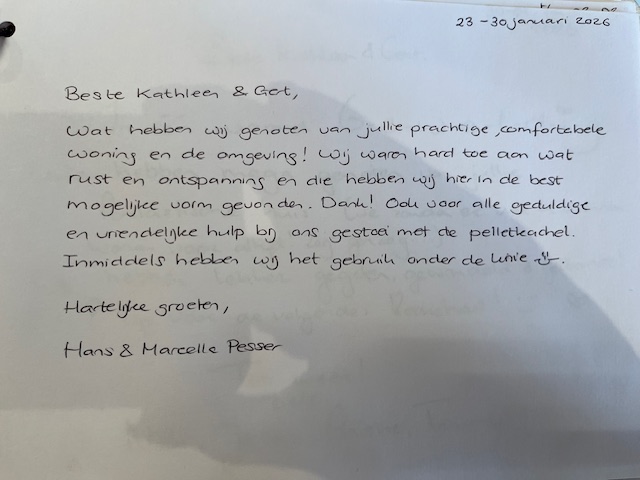 23 - 30 januari 2026
Beste Kathleen & Get,
Wat hebben wij genoten van jullie prachtige, comfortabele
woning en de omgeving! Wij waren hard toe aan wat
rust en ontspanning en die hebben wij hier in de best
mogelijke vorm gevonden. Dank! Ook voor alle geduldige
en vriendelijke hulp bij ons gestoei met de pelletkachel.
Inmiddels hebben wij het gebruik onder de knie
Hartelijke groeten,
Hans & Marcelle Pesser